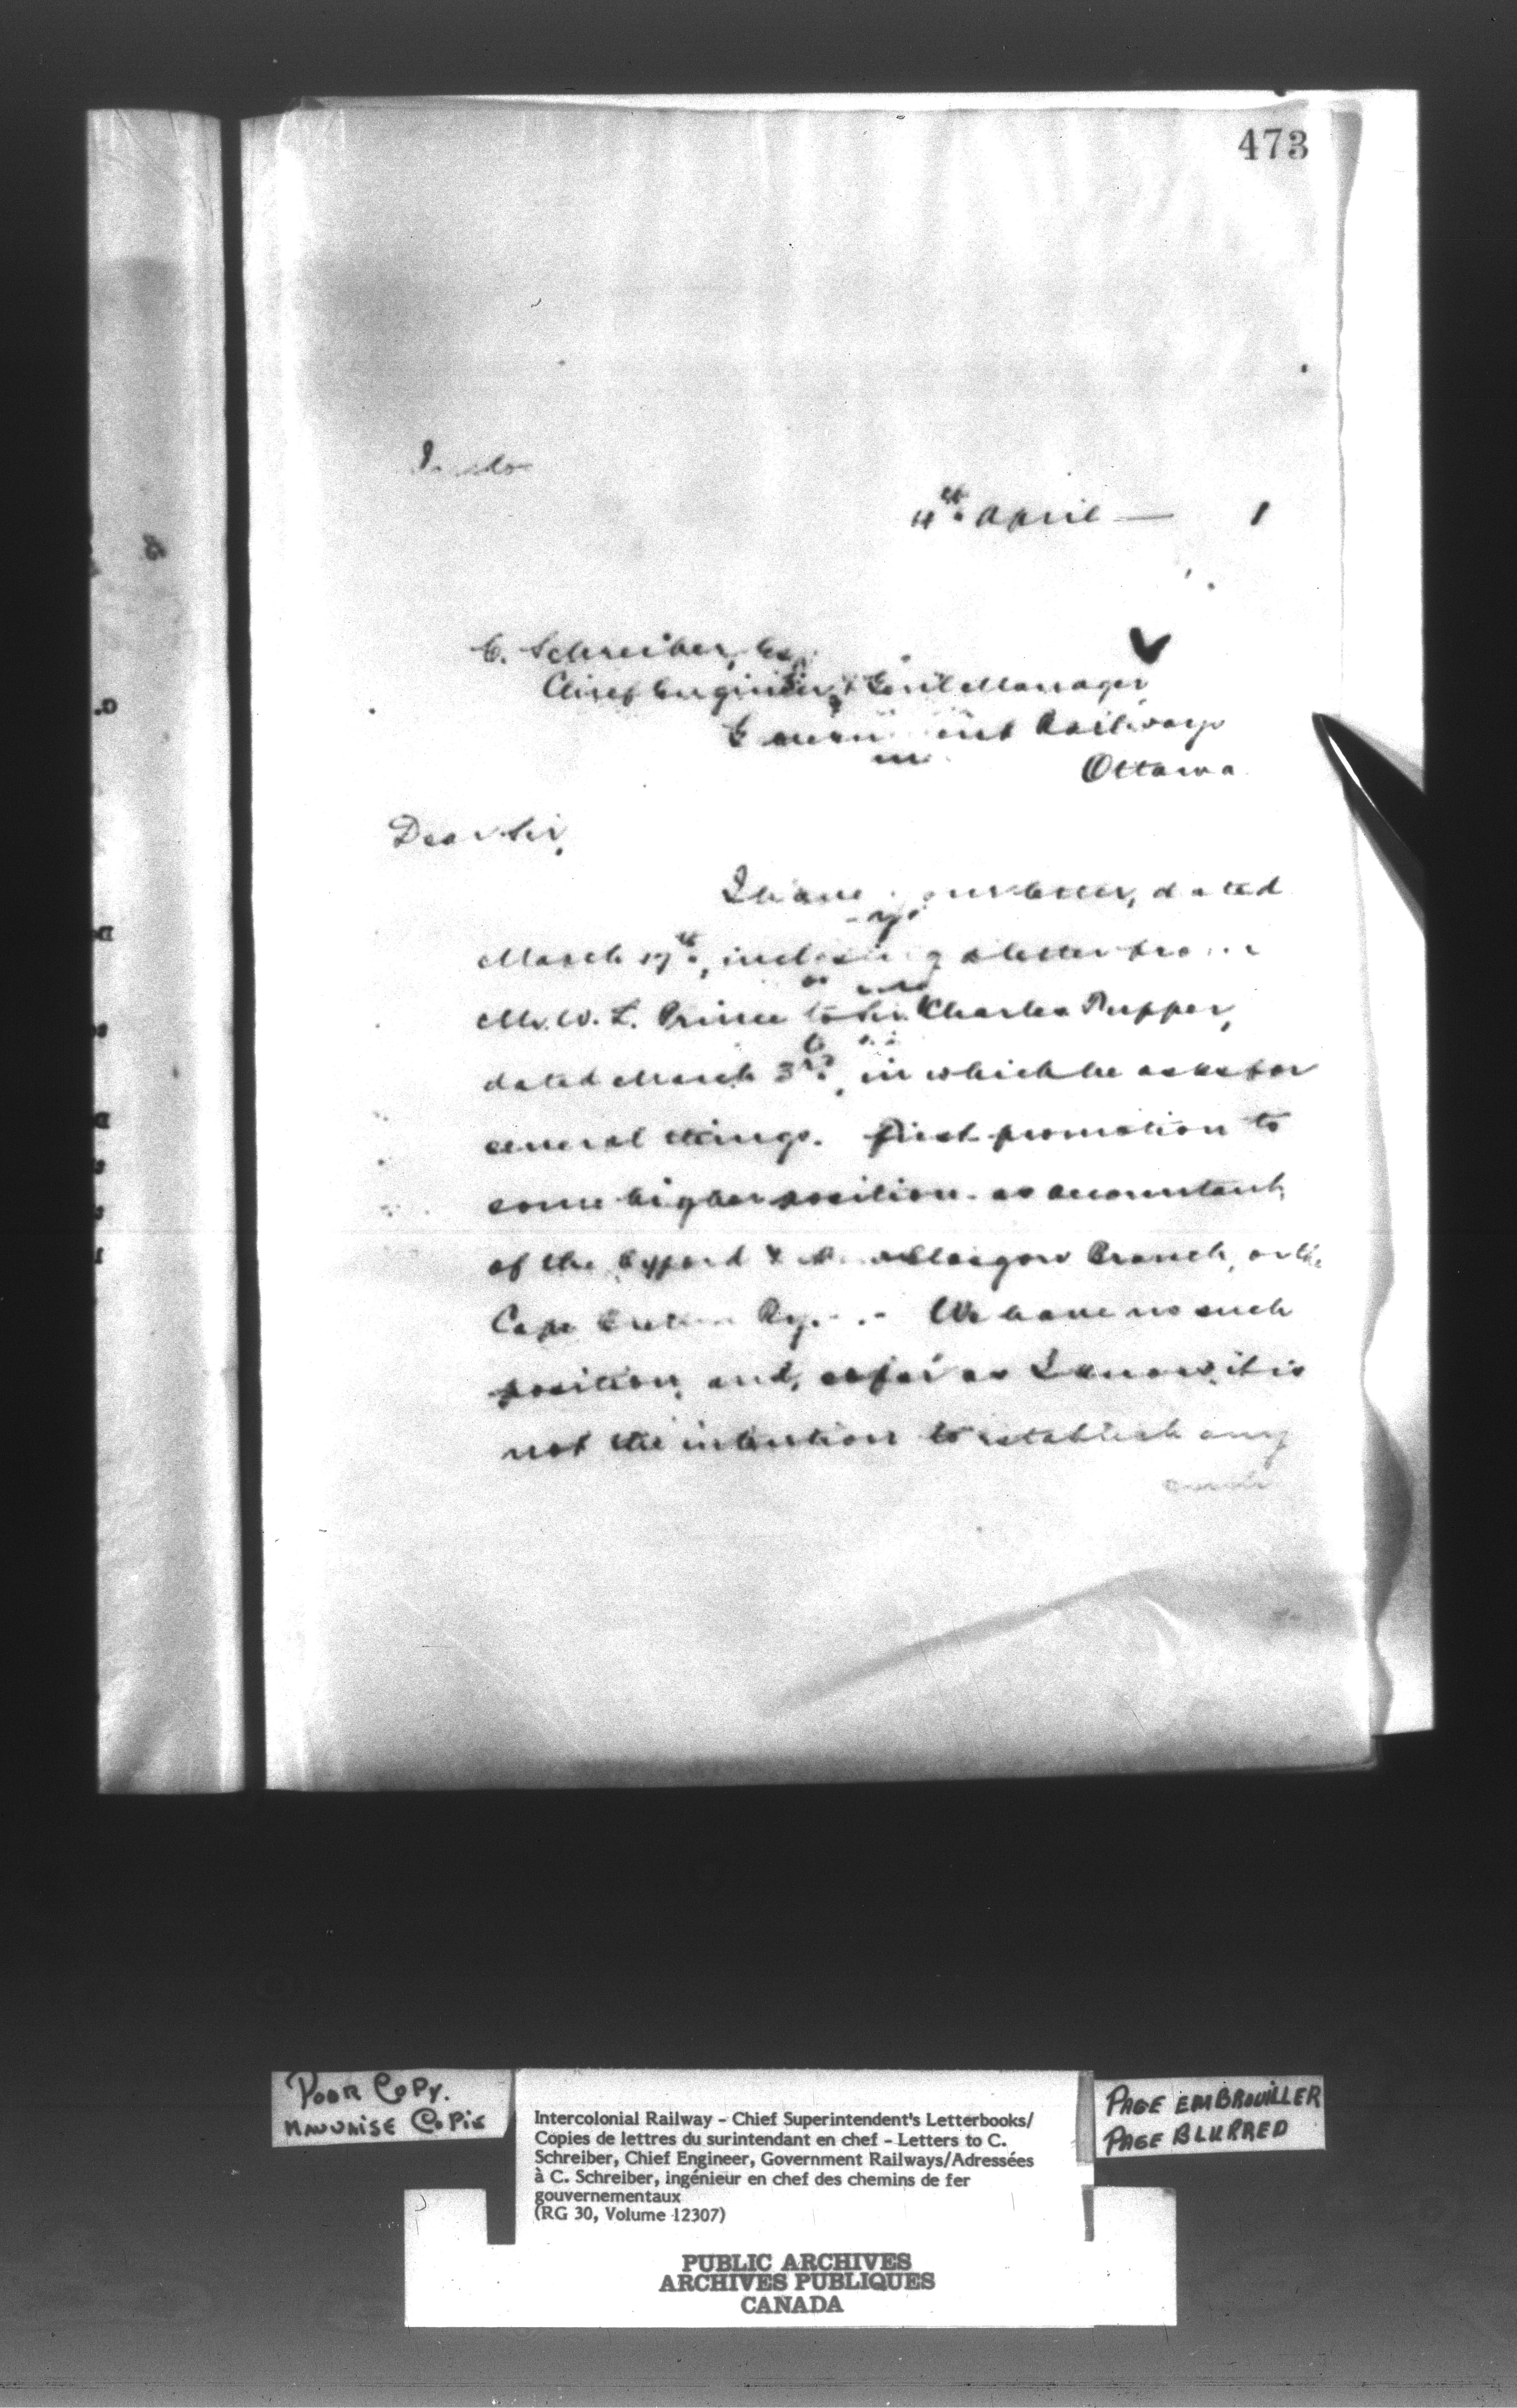 473
4th April — 1
C. Schreiber, Esq.
Chief Engineer & Genl Manager
Government Railways
Ottawa
Dear Sir,
I have your letter, dated
March, inclosing a letter from
Mr. W. L. Prince to Sir Charles Tupper,
dated March 3rd, in which he asks for
several things. First promotion to
some higher position as accountant
of the Oxford & New Glasgow Branch, or the
Cape Breton Ry. - We have no such
position, and, as far as I know, it is
not the intention to establish any
such
POOR COPY.
MAUVAISE COPIE
Intercolonial Railway - Chief Superintendent's Letterbooks/
Copies de lettres du surintendant en chef - Letters to C.
Schreiber, Chief Engineer, Government Railways/Adressées
à C. Schreiber, ingénieur en chef des chemins de fer
gouvernementaux
(RG 30, Volume 12307)
PAGE EMBROUILLER
PAGE BLURRED
PUBLIC ARCHIVES
ARCHIVES PUBLIQUES
CANADA